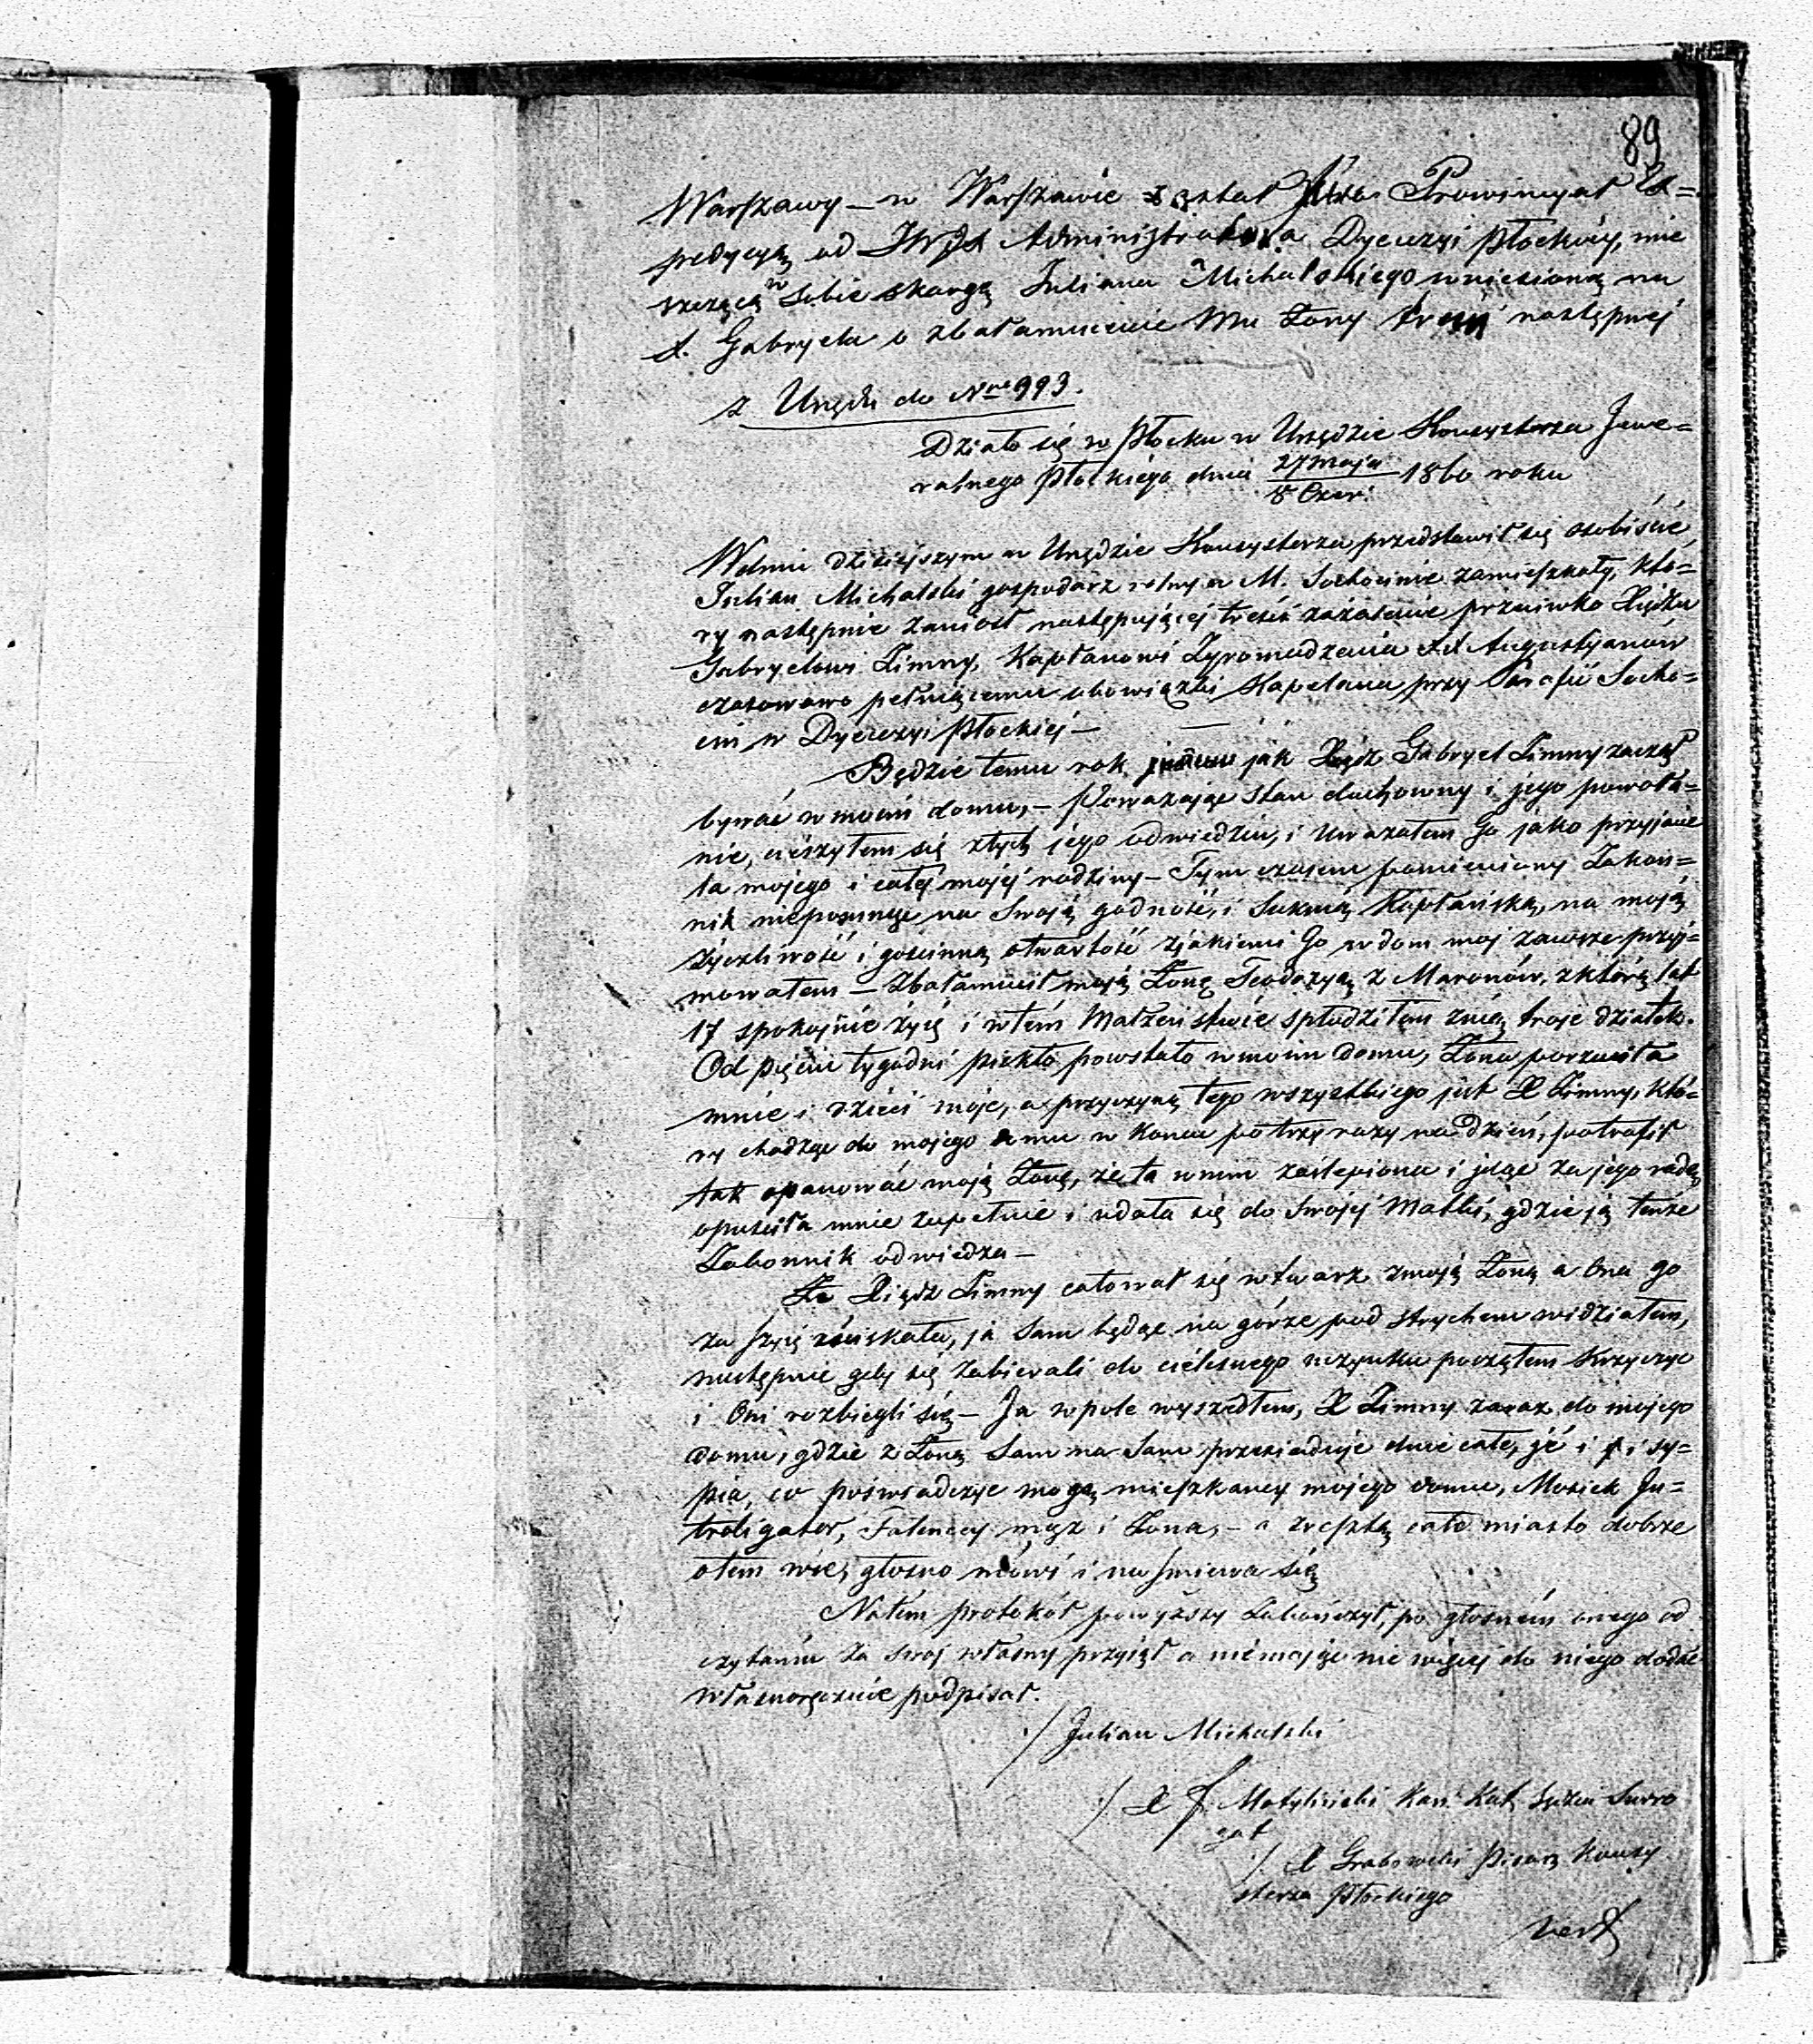 89
Warszawy – w Warszawie zastał Prowincyał Ex=
pedycyą od JWJX Administratora Dyecezyi Płockiéj, mie
szczącą w sobie skargę Juliana Michalskiego wniesioną na
X. Gabryela o zbałamucenie Mu Żony treści następnéj
z Urzędu do Nro 993.
Działo się w Płocku w Urzędzie Konsystorza Jene=
ralnego Płockiego dnia 27 Maja / 8 Czer: 1860 roku
W dniu dzisiejszym w Urzędzie Konsystorza przedstawił się osobiście
Julian Michalski gospodarz rolny w M. Sochocinie zamieszkały, któ=
ry następnie zaniósł następującéj treści zażalenie przeciwko Xiędzu
Gabryelowi Zimny, Kapłanowi Zgromadzenia XX Augustyanów
czasowowo pełniącemu obowiązki Kapelana przy Parafii Socho=
cin w Dyecezyi Płockiej –
Będzie temu rok jak Xiądz Gabryel Zimny zaczął
bywać w moim domu, – Poważając stan duchowny i jego powoła=
nie, cieszyłem się z tych jego odwiedzin, i uważałem Go jako przyjacie
la mojego i całéj mojéj rodziny – Tym czasem pomieniony Zakon=
nik niepomnąc na Swoją godność, i Suknią Kapłańską, na moją
życzliwość i gościnną otwartość z jakiemi Go w dom moj zawsze przyj=
mowałem – zbałamucił moją Żonę Teodozyą z Maronów, z którą lat
17 spokojnie żyję i w tém Małżeństwie spłodziłem z nią troje dziatek.
Od pięciu tygodni piekło powstało w moim domu, Żona porzuciła
mnie i dzieci moje, a przyczyną tego wszystkiego jest X Zimny, któ=
ry chodząc do mojego domu w końcu po trzy razy na dzień, potrafił
tak opanować moją Żonę, że ta w nim zaślepiona i idąc za jego radą
opuściła mnie zupełnie i udała się do Swojéj Matki, gdzie ją tenże
Zakonnik odwiedza –
Że Xiądz Zimny całował się w twarz z moją Żoną a Ona go
za szyję ściskała, ja Sam będąc na górze pod strychem widziałem,
następnie gdy się zabierali do cielesnego uczynku począłem Krzyczyć
i Oni rozbiegli się – Ja w pole wyszedłem, X Zimny zaraz do mojego
domu, gdzie z Żoną Sam na Sam przesiaduje dnie całe, jé i i sy=
pia, co poświadczyć mogą mieszkańcy mojego domu, Mosiek In=
troligator, Falency mąż i Żona, – a zresztą całe miasto dobrze
o tem wie, głosno mówi i naśmiewa się
Na tém protokół powyższy Zakończył, po głośném onego od
czytaniu za swoj własny przyjął a niemając nic więcéj do niego dodać
własnoręcznie podpisał.
./ Julian Michalski
./ X J. Matyliński Kan: Kat Sędzia Surro
gat
./ X Grabowski Pisarz Konsy
storza Płockiego
vert